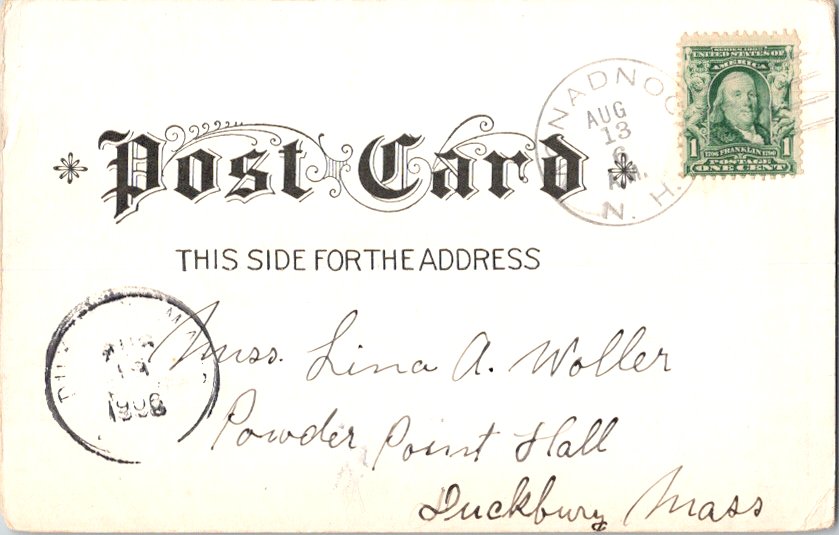 SERIES 1902
UNITED STATES OF
AMERICA
1 1706 FRANKLIN 1790 1
POSTAGE
ONE CENT
NADNOC
AUG
13
6
N. H.
Post Card
THIS SIDE FOR THE ADDRESS
AUG
1906
Miss. Lina A. Woller
Powder Point Hall
Duckbury Mass